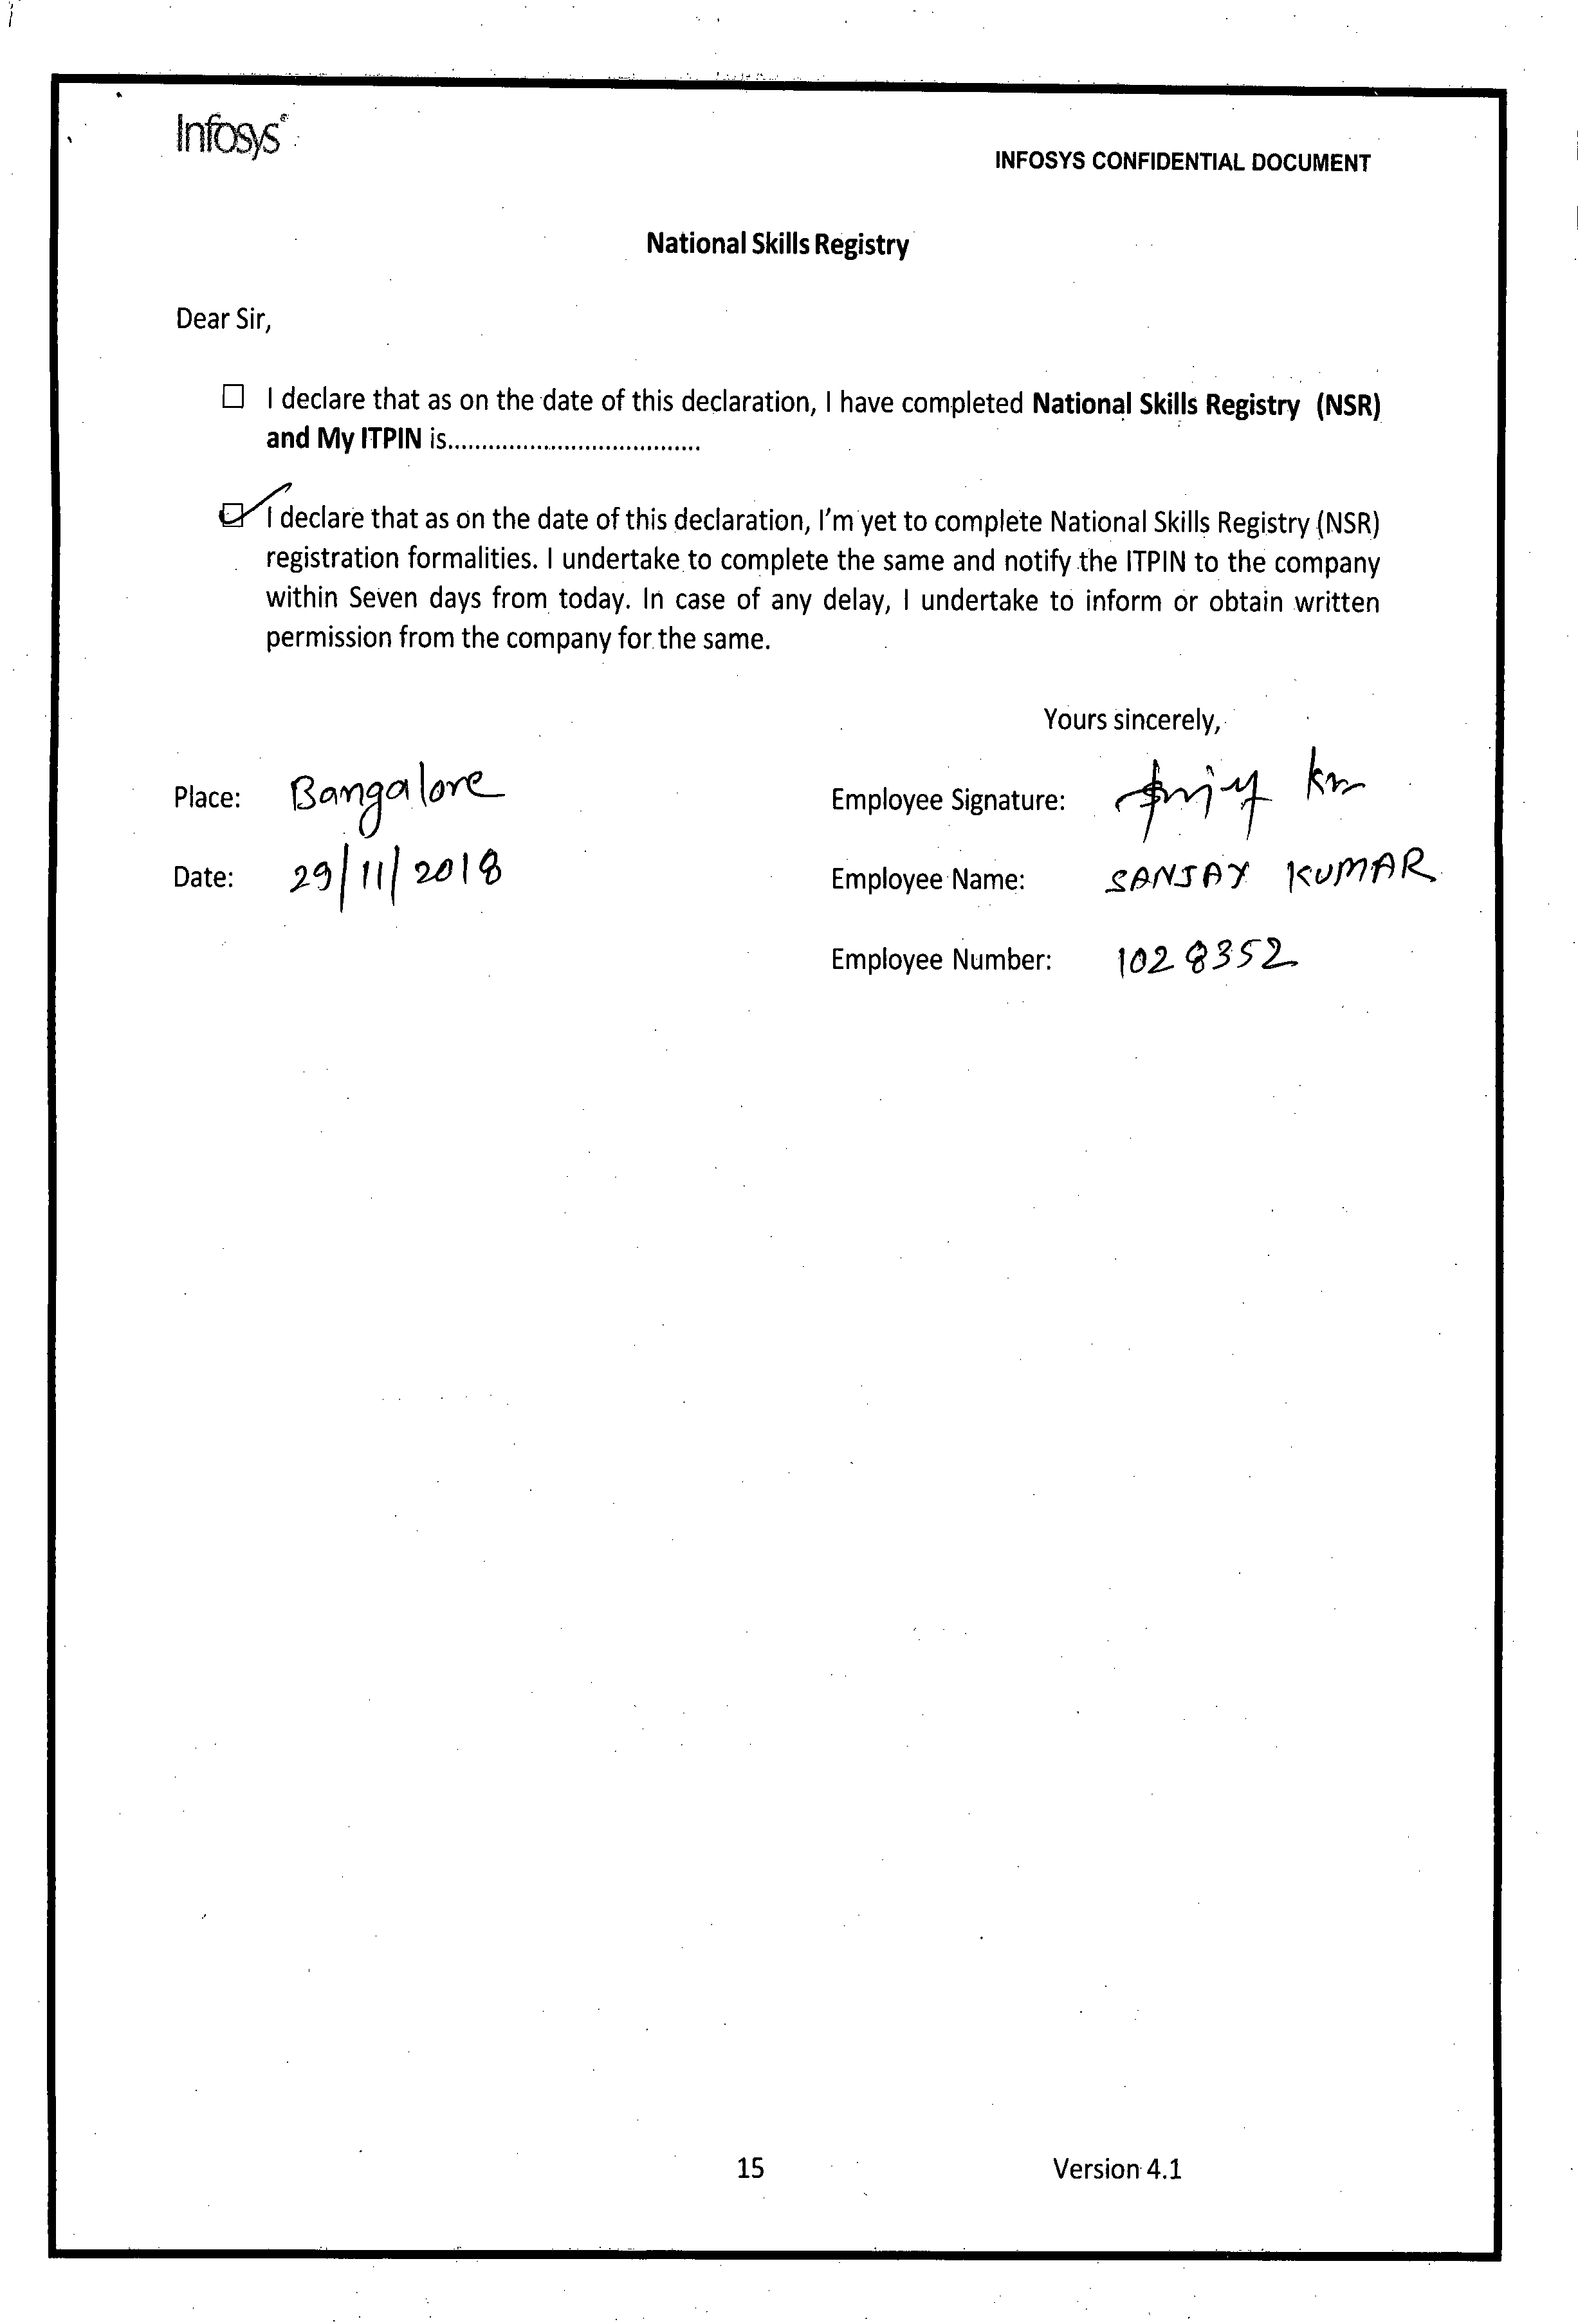 Infosys®
INFOSYS CONFIDENTIAL DOCUMENT
National Skills Registry
Dear Sir,
☐ I declare that as on the date of this declaration, I have completed National Skills Registry (NSR)
and My ITPIN is......................................
☑ I declare that as on the date of this declaration, I'm yet to complete National Skills Registry (NSR)
registration formalities. I undertake to complete the same and notify the ITPIN to the company
within Seven days from today. In case of any delay, I undertake to inform or obtain written
permission from the company for the same.
Yours sincerely,
Place: Bangalore
Employee Signature:
Date: 29/11/2018
Employee Name: SANJAY KUMAR
Employee Number: 1028352
15
Version 4.1